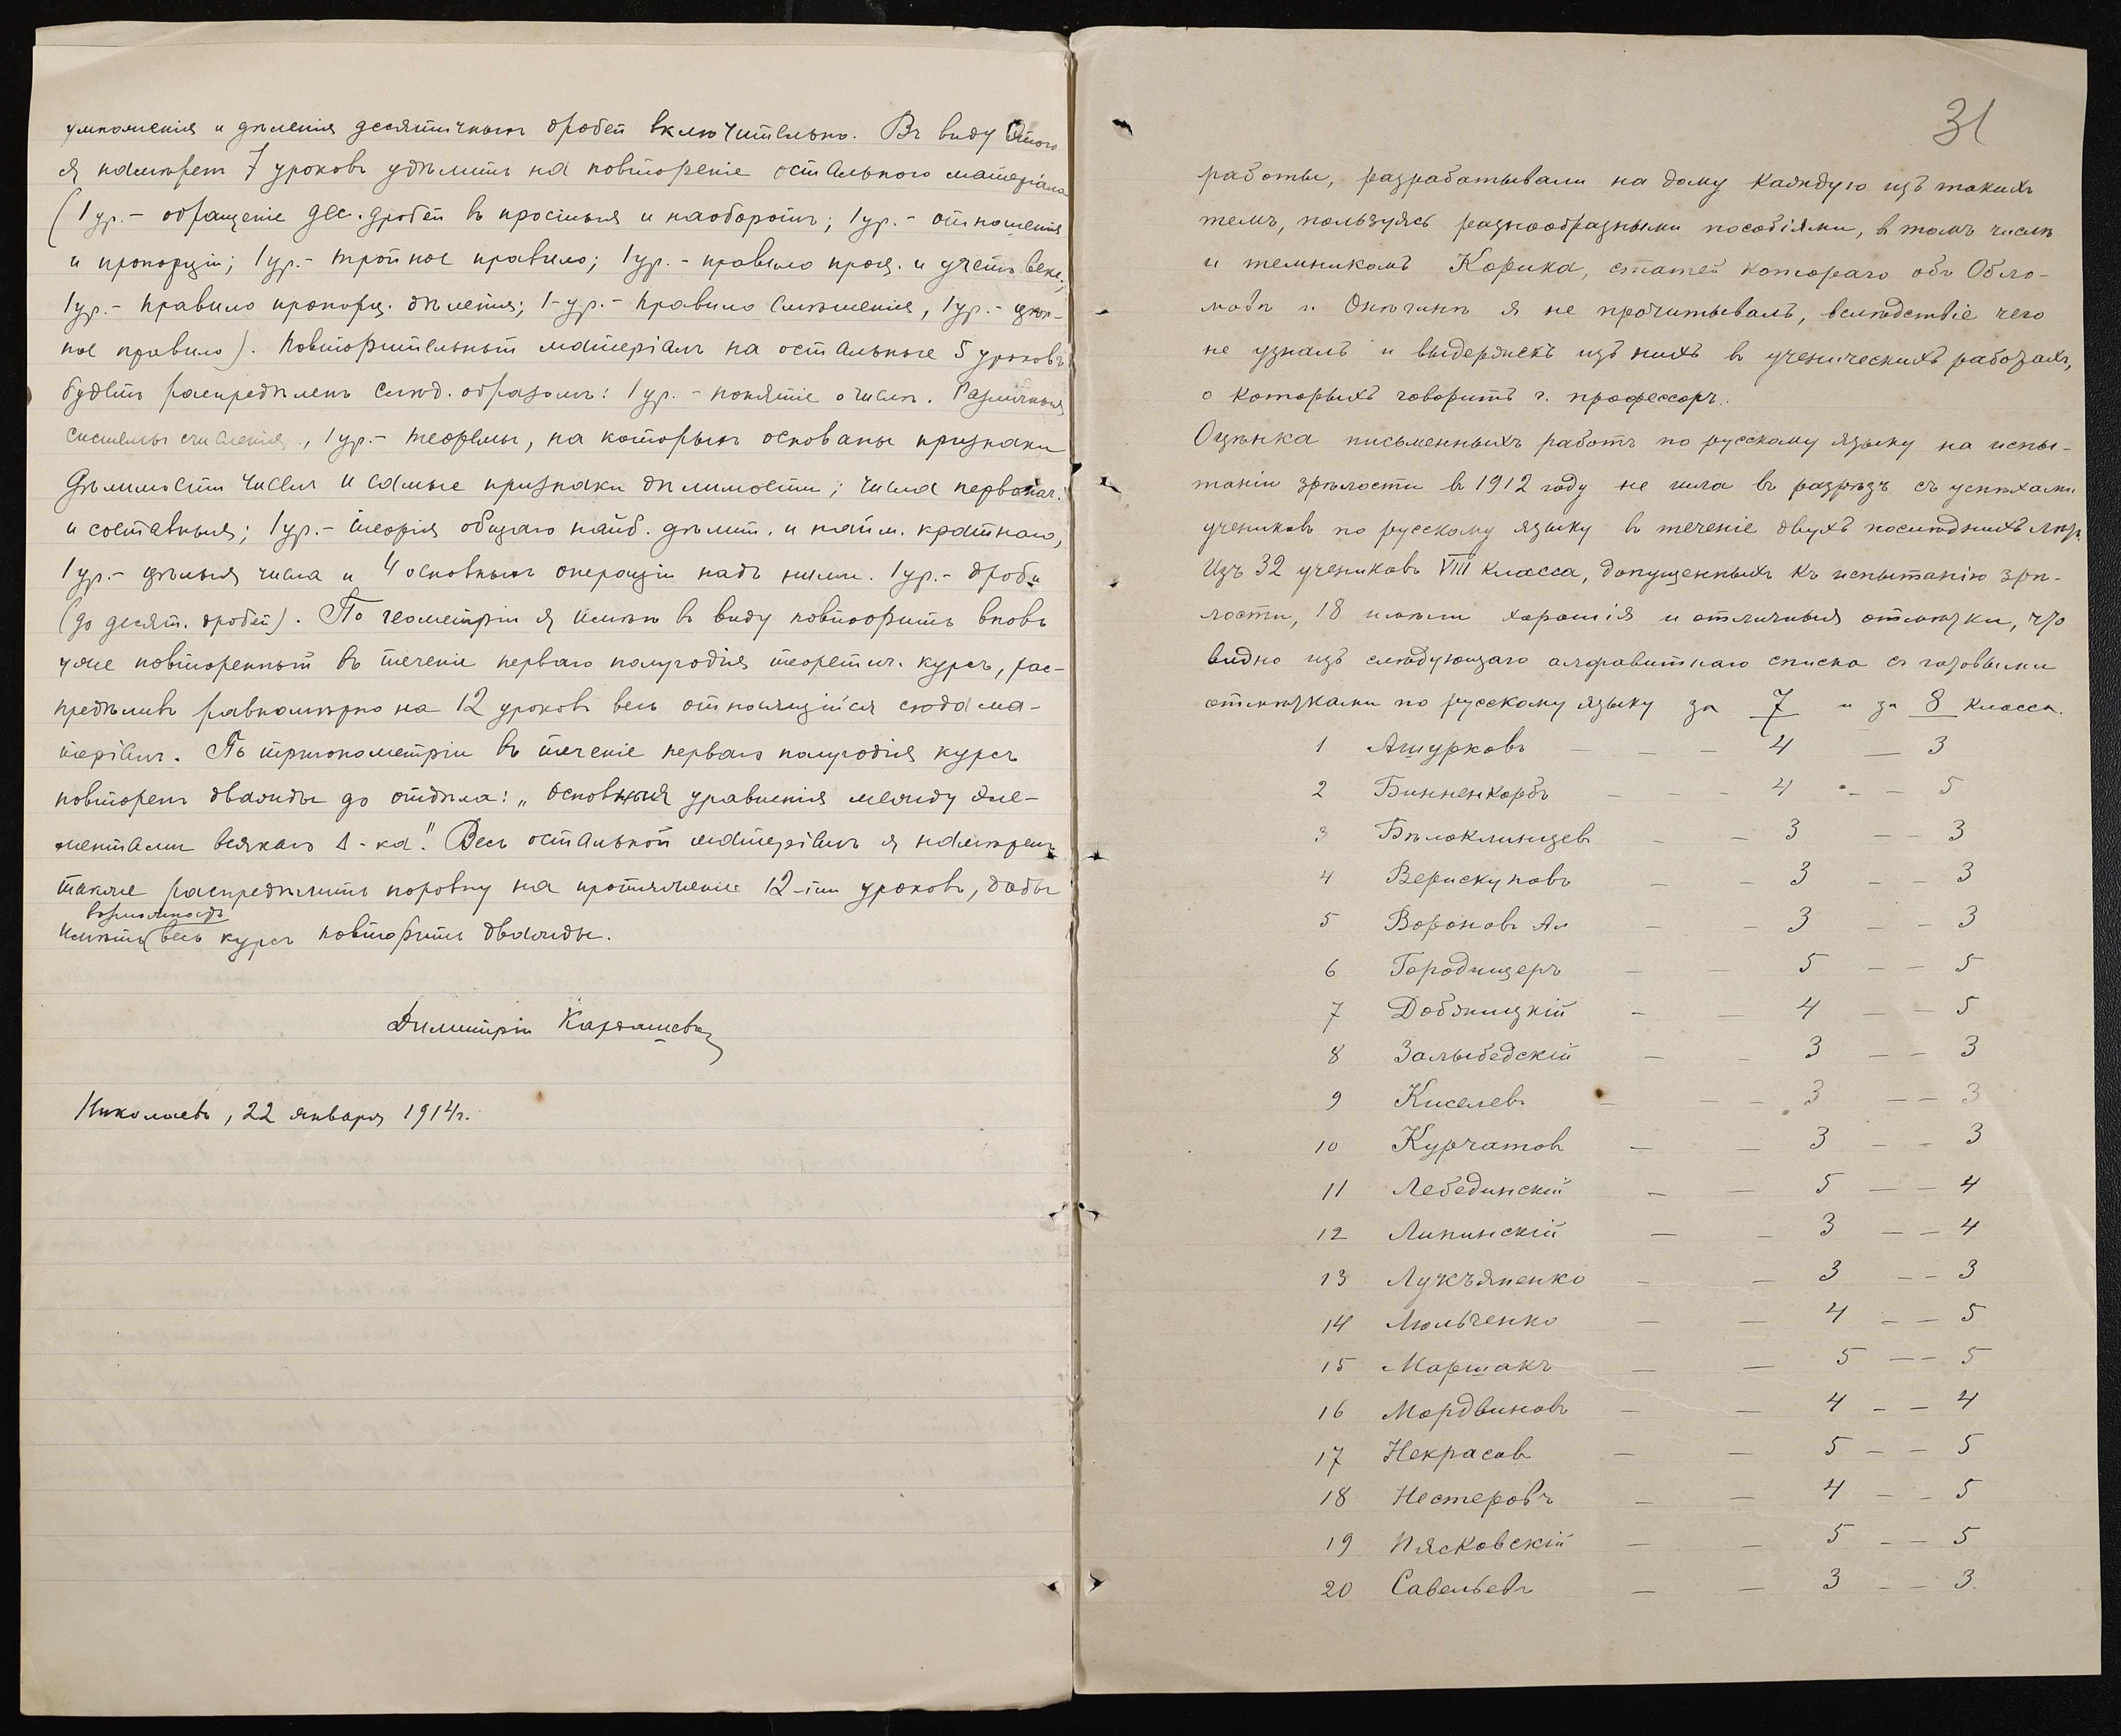 умноженія и дѣленія десятичныхъ дробей включительно. Въ виду этого
я намѣренъ 7 уроковъ удѣлить на повтореніе остального матеріала
(1 ур. - обращеніе дес. дробей въ простыя и наоборотъ; 1 ур. - отношенія
и пропорціи; 1 ур. - тройное правило; 1 ур. - правило проц. и учетъ векс.;
1 ур. - правило пропорц. дѣленія; 1 ур. - правило смѣшенія, 1 ур. - цѣп-
ное правило). Повторительный матеріалъ на остальные 5 уроковъ
будетъ распредѣленъ слѣд. образомъ: 1 ур. - понятіе о числѣ. Различныя
системы счисленія, 1 ур. - теоремы, на которыхъ основаны признаки
дѣлимости чиселъ и самые признаки дѣлимости; числа первонач.
и составныя; 1 ур. - теорія общаго наиб. дѣлит. и наим. кратнаго,
1 ур. - цѣлыя числа и 4 основныхъ операціи надъ ними. 1 ур. - дроби
(до десят. дробей). По геометріи я имѣю въ виду повторить вновь
уже повторенный въ теченіе перваго полугодія теоретич. курсъ, рас-
предѣливъ равномѣрно на 12 уроковъ весь относящійся сюда ма-
теріалъ. По тригонометріи въ теченіе перваго полугодія курсъ
повторенъ дважды до отдѣла: „основныя уравненія между эле-
ментами всякаго Δ-ка." Весь остальной матеріалъ я намѣренъ
также распредѣлить поровну на протяженіе 12-ти уроковъ, дабы
возможность
имѣть весь курсъ повторить дважды.
Димитрій Карташевъ
Николаевъ, 22 января 1914 г.
31
работы, разрабатывали на дому каждую изъ такихъ
темъ, пользуясь разнообразными пособіями, в томъ числѣ
и темникомъ Корика, статей котораго объ Обло-
мовѣ и Онѣгинѣ я не прочитывалъ, вслѣдствіе чего
не узналъ и выдержекъ изъ нихъ в ученическихъ работахъ,
о которыхъ говоритъ г. профессоръ.
Оцѣнка письменныхъ работъ по русскому языку на испы-
таніи зрѣлости в 1912 году не шла въ разрѣзъ съ успѣхами
учениковъ по русскому языку в теченіе двухъ послѣднихъ лѣтъ.
Изъ 32 учениковъ VIII класса, допущенныхъ къ испытанію зрѣ-
лости, 18 имѣли хорошія и отличныя отмѣтки, что
видно изъ слѣдующаго алфавитнаго списка съ годовыми
отмѣтками по русскому языку за 7 и за 8 классъ.
1 Ашурковъ — — — 4 — 3
2 Бинненкорбъ — — — 4 — — 5
3 Бѣлоклинцевъ — — 3 — — 3
4 Верискуновъ — — 3 — — 3
5 Вороновъ Ал — — 3 — — 3
6 Городищеръ — — 5 — — 5
7 Добяницкій — — 4 — — 5
8 Залыбедскій — — 3 — — 3
9 Киселевъ — — — 3 — — 3
10 Курчатов — — 3 — — 3
11 Лебединскій — — 5 — — 4
12 Липинскій — — 3 — — 4
13 Лукъяненко — — 3 — — 3
14 Люльченко — — 4 — — 5
15 Маршакъ — — 5 — — 5
16 Мордвиновъ — — 4 — — 4
17 Некрасовъ — — 5 — — 5
18 Нестеровъ — — 4 — — 5
19 Пясковскій — — 5 — — 5
20 Савельевъ — — 3 — — 3.